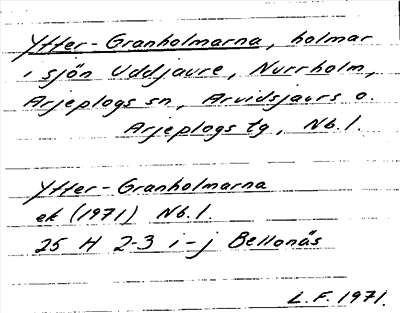 Ytter-Granholmarna, holmar
i sjön Uddjaure, Nurrholm,
Arjeplogs sn, Arvidsjaurs o.
Arjeplogs tg, Nb.l.
Ytter-Granholmarna
ek (1971) Nb.l.
25 H 2-3 i-j Bellonäs
L.F. 1971.